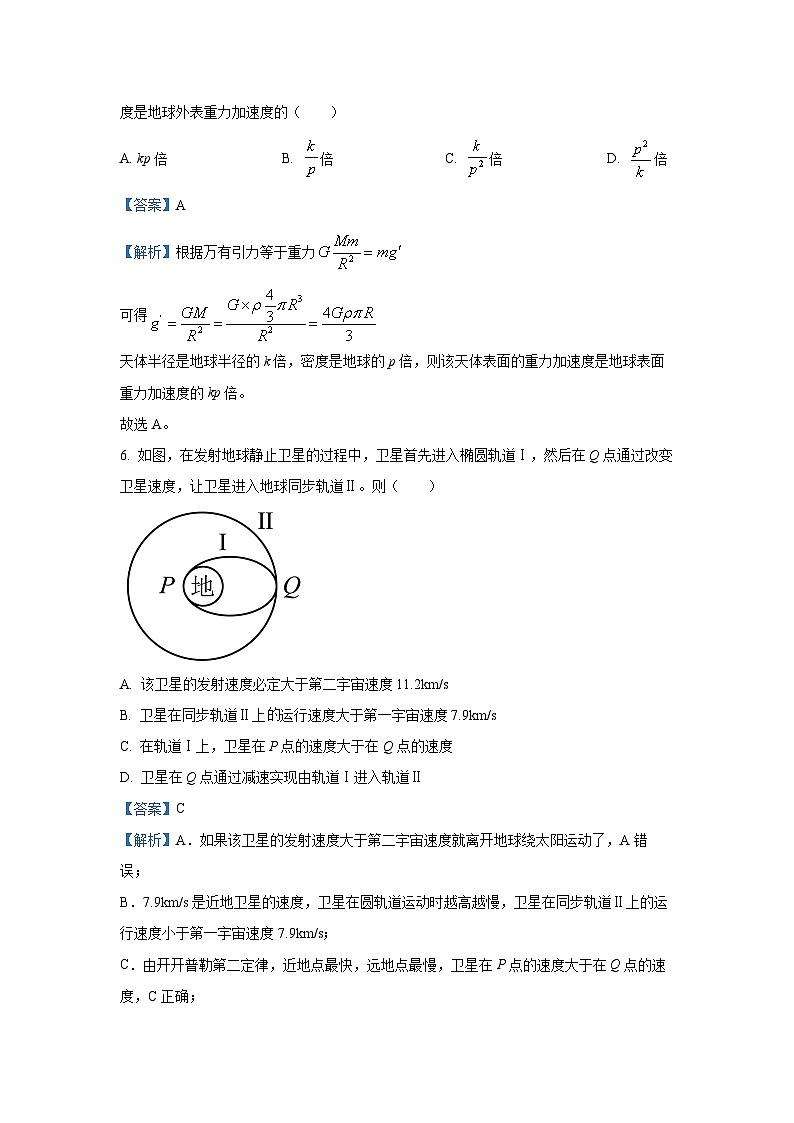 度是地球外表重力加速度的（　　）
A. kp倍 B. $\frac{k}{p}$倍 C. $\frac{k}{p^2}$倍 D. $\frac{p^2}{k}$倍
【答案】A
【解析】根据万有引力等于重力$G\frac{Mm}{R^2}=mg'$
可得$g'=\frac{GM}{R^2}=\frac{G×ρ\frac{4}{3}πR^3}{R^2}=\frac{4GρπR}{3}$
天体半径是地球半径的k倍，密度是地球的p倍，则该天体表面的重力加速度是地球表面
重力加速度的kp倍。
故选A。
6. 如图，在发射地球静止卫星的过程中，卫星首先进入椭圆轨道Ⅰ，然后在Q点通过改变
卫星速度，让卫星进入地球同步轨道Ⅱ。则（　　）
Ⅱ
Ⅰ
P 地 Q
A. 该卫星的发射速度必定大于第二宇宙速度11.2km/s
B. 卫星在同步轨道Ⅱ上的运行速度大于第一宇宙速度7.9km/s
C. 在轨道Ⅰ上，卫星在P点的速度大于在Q点的速度
D. 卫星在Q点通过减速实现由轨道Ⅰ进入轨道Ⅱ
【答案】C
【解析】A．如果该卫星的发射速度大于第二宇宙速度就离开地球绕太阳运动了，A错
误；
B．7.9km/s是近地卫星的速度，卫星在圆轨道运动时越高越慢，卫星在同步轨道Ⅱ上的运
行速度小于第一宇宙速度7.9km/s；
C．由开开普勒第二定律，近地点最快，远地点最慢，卫星在P点的速度大于在Q点的速
度，C正确；